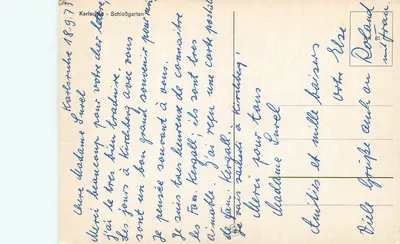 Karlsruhe - Schloßgarten
Karlsruhe 18.9.73
Chère Madame Surel
Merci beaucoup pour votre
j'ai le très bien traduire.
Les jours à Kirchberg avec vous
sont un bon grand souvenir pour moi.
Je pense souvent à vous.
Je suis très heureux de connaître
les Fam. Kergall; ils sont très
aimable. J'ai reçu une carte postale
de fam. Kergall.
Je vous souhaite à Kirchberg!
Merci pour tous
Madame Surel
Amitiés et mille baisers
votre Else
Viele Grüße auch an Roland
mit Frau.